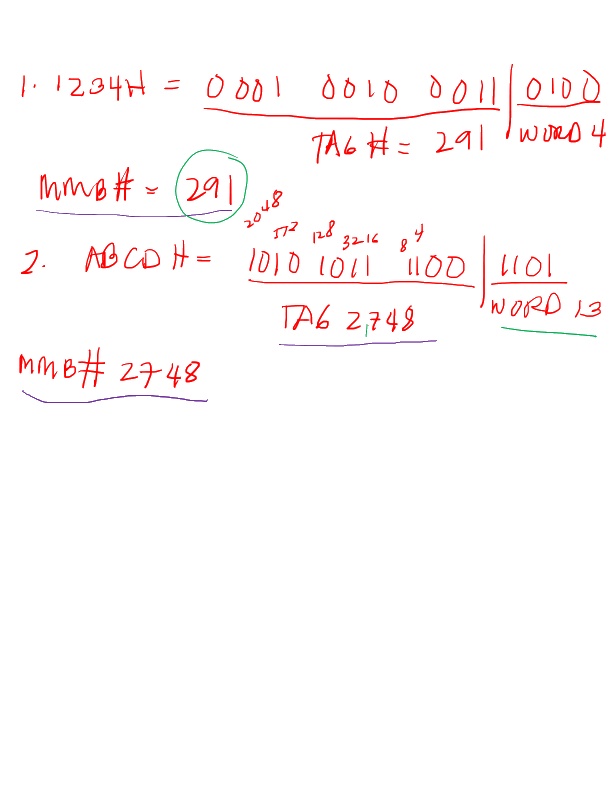 1. 1234H = 0001 0010 0011 | 0100
TAG # = 291 WORD 4
MMB# = 291
2048 512 128 32 16 8 4
2. ABCD H = 1010 1011 1100 | 1101
TAG 2748 WORD 13
MMB# 2748